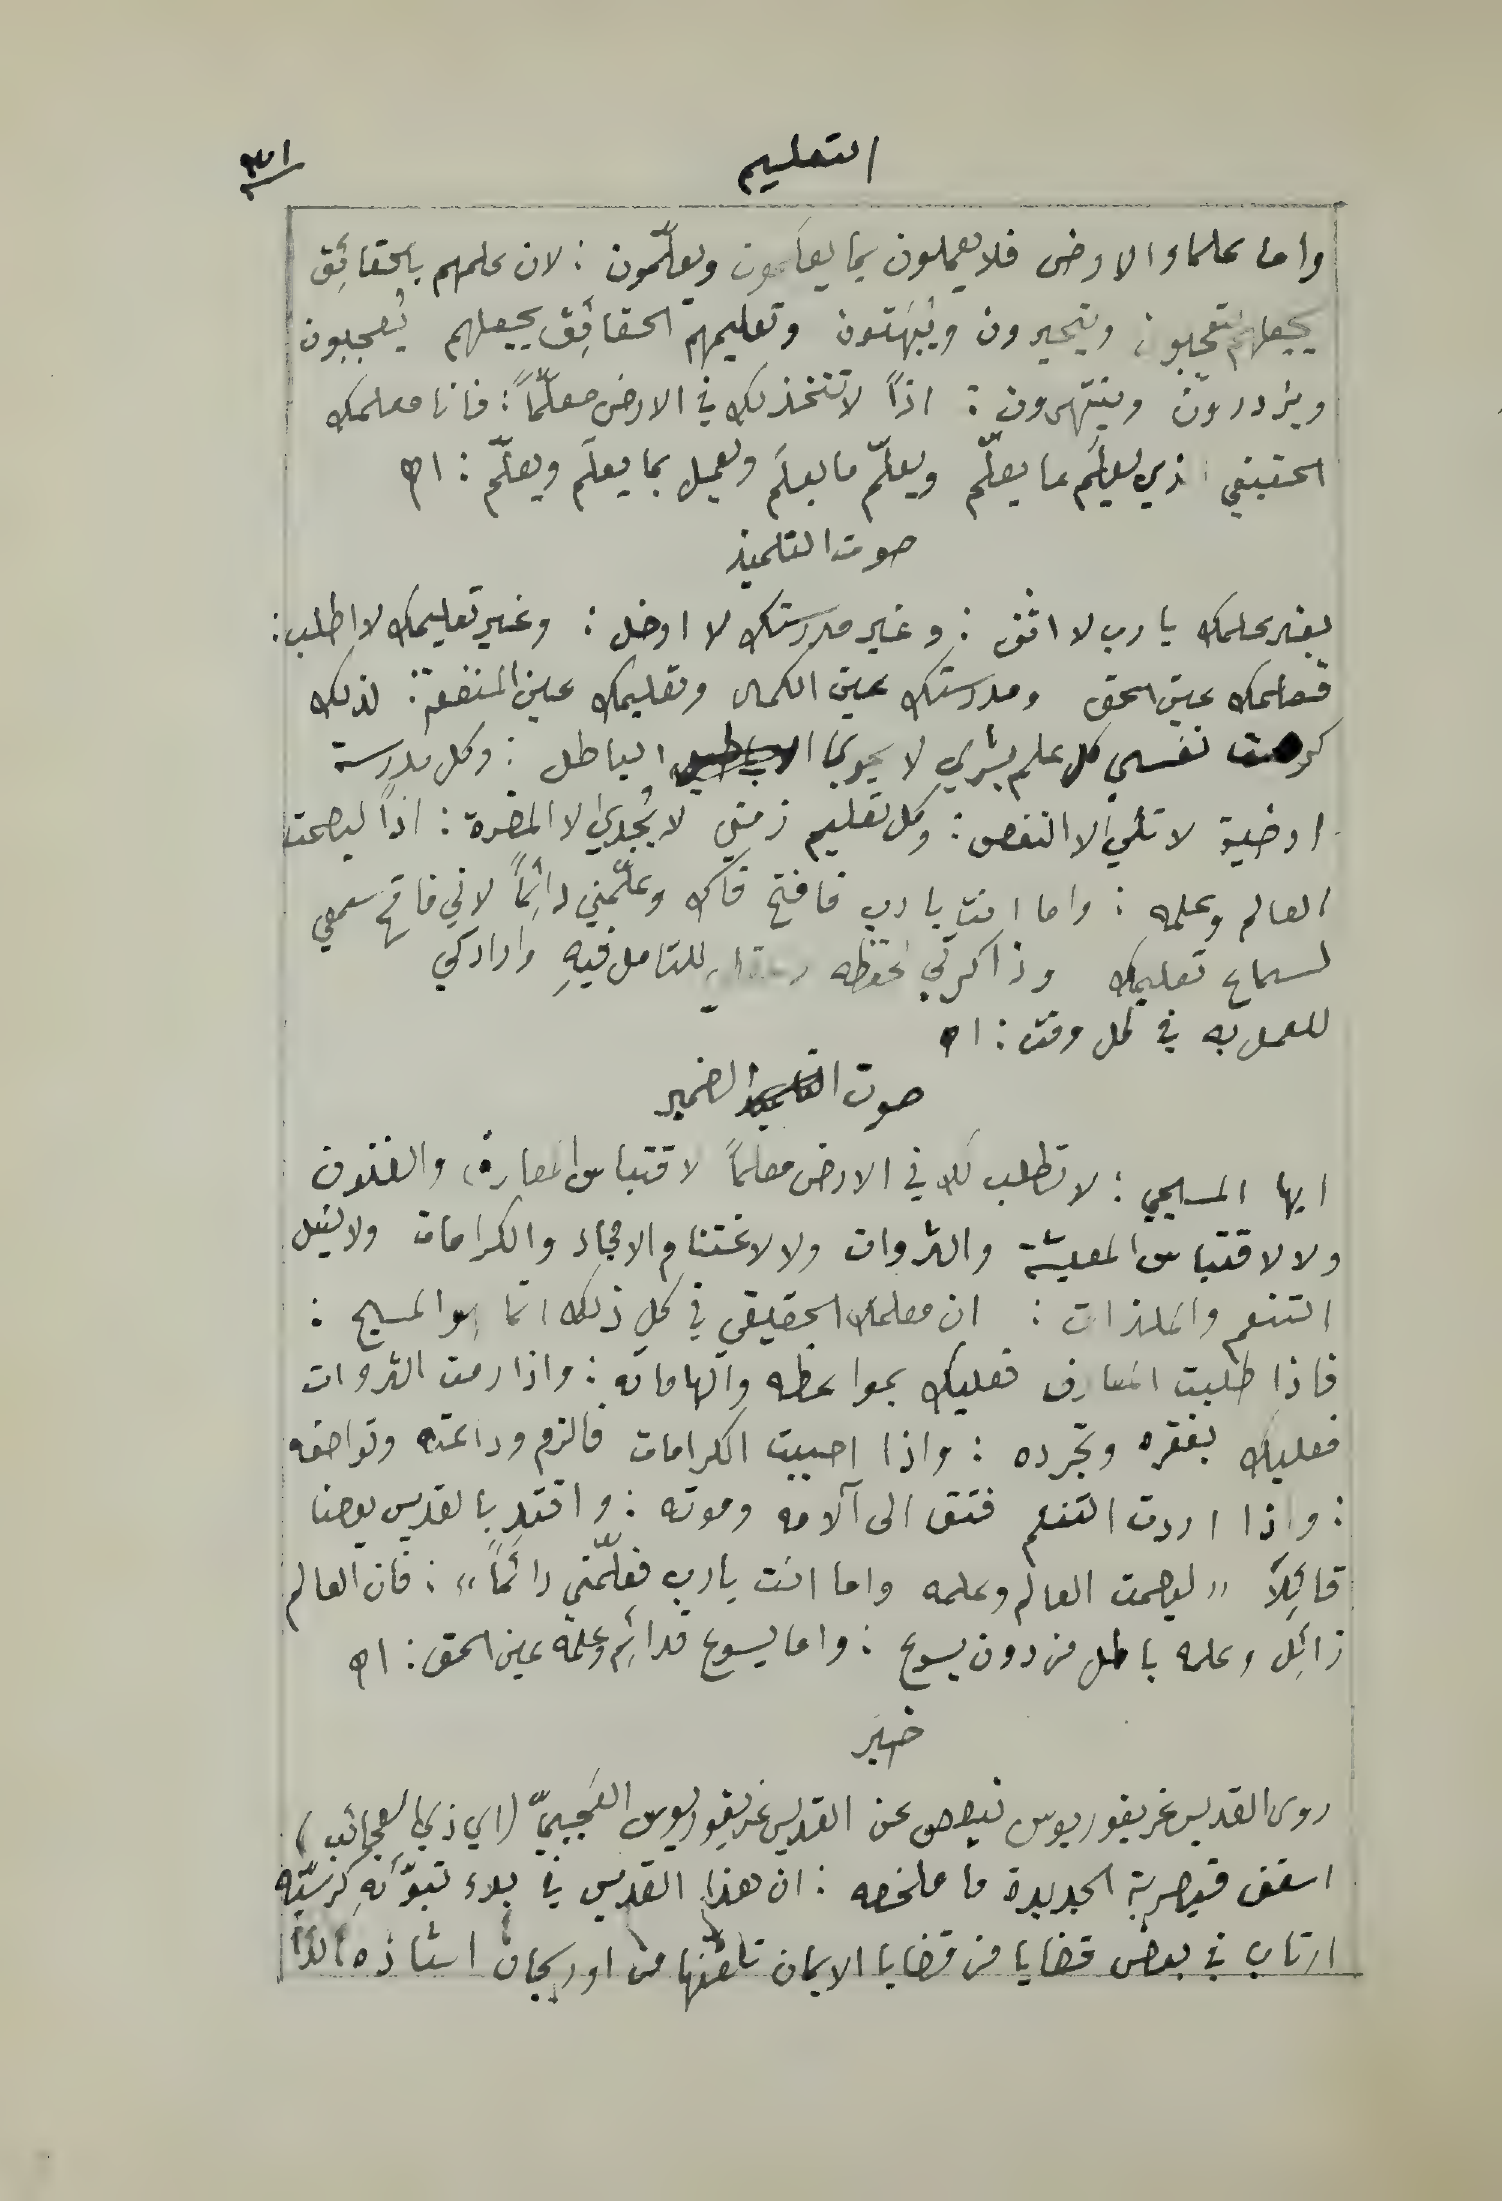 التعليم
٣١
واما علماء الارض فلا يعملون بما يعلَمون ويعلّمون : لان علمهم بالحقائِق
يجعلهم يتعجبون ويتحيرون ويُبهَتون وتعليمهم الحقائِق يجعلهم يُعجبون
ويزدرون وينتهرون : اذًا لا تتخذ لك في الارض معلّمًا : فانا معلمك
الحقيقي الذي يعلَم ما يعلّم ويعلّم ما يعلَم ويعمل بما يعلَم ويعلّم : اه
صوت التلميذ
بغير علمك يا رب لا اثق : وغير مدرستك لا ادخل : وغير تعليمك لا اطلب :
فعلمك عين الحق ومدرستك عين الكمال وتعليمك عين المنفعة : لذلك
كرهت نفسي كل علم بشري لا يحوي الا الباطل : وكل مدرسة
ارضية لا تلي الا النقص : وكل تعليم زمني لا يُجدي الا المضرة : اذًا ليصمت
العالم وعلمه : واما انت يا رب فافتح فاك وعلّمني دائِمًا لاني فاتح سمعي
لسماع تعليمك وذاكرتي لحفظه وعقلي للتامل فيهِ وارادتي
للعمل به في كل وقت : اه
صوت الضمير
ايها المسيحي : لا تطلب لك في الارض معلمًا لاقتباس المعارف والفنون
ولا لاقتباس المعيشة والثروات ولا لاغتنام الامجاد والكرامات ولا لنيل
التنعم والملذات : ان معلمك الحقيقي في كل ذلك انما هو المسيح :
فاذا طلبت المعارف فعليك بمواعظه والهاماته : واذا رمت الثروات
فعليك بفقره وتجرده : واذا احببت الكرامات فالزم وداعته وتواضعه
: واذا اردت التنعم فتق الى آلامه وموته : واقتدِ بالقديس يوحنا
قائِلاً « ليصمت العالم وعلمه واما انت يا رب فعلّمني دائِمًا » : فان العالم
زائِل وعلمه باطل من دون يسوع : واما يسوع فدائِم وعلمه عين الحق : اه
خبر
روى القديس غريغوريوس نيصص عن القديس غريغوريوس العَجَبيّ (اي ذي العجائب)
اسقف قيصرية الجديدة ما ملخصه : ان هذا القديس في بدء تبوّئهِ كرسيّه
ارتاب في بعض قضايا من قضايا الايمان تلقّنها من اوريجان استاذه